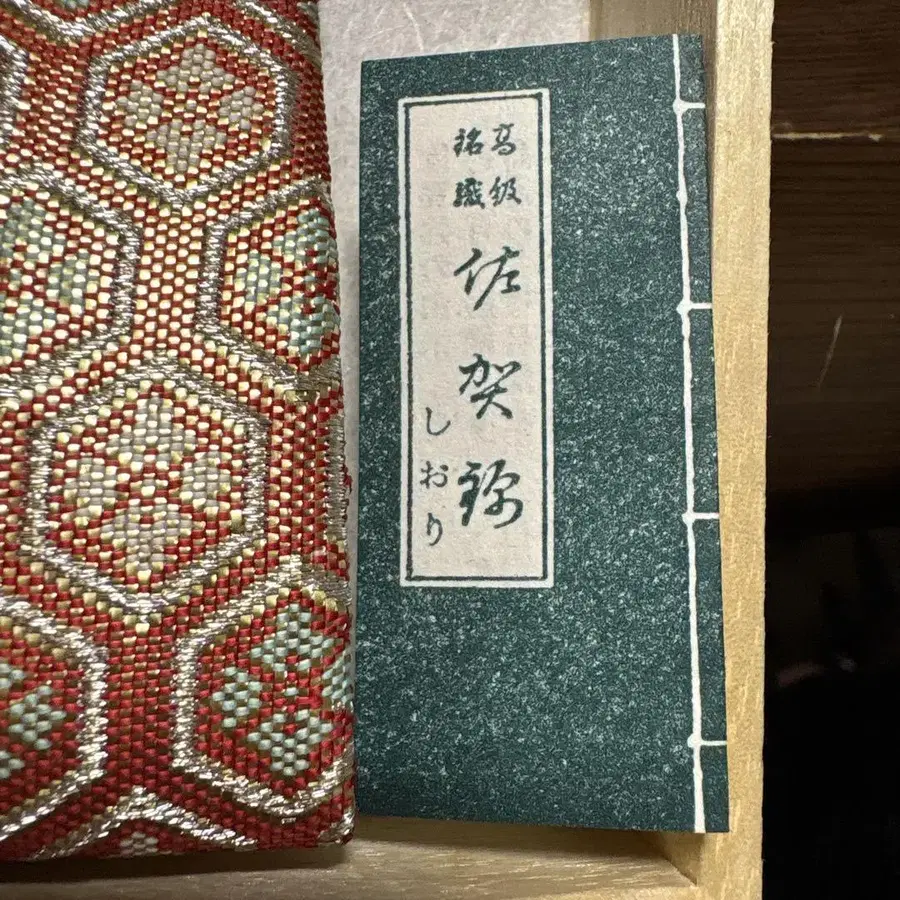 高級
銘織
佐賀錦
しおり